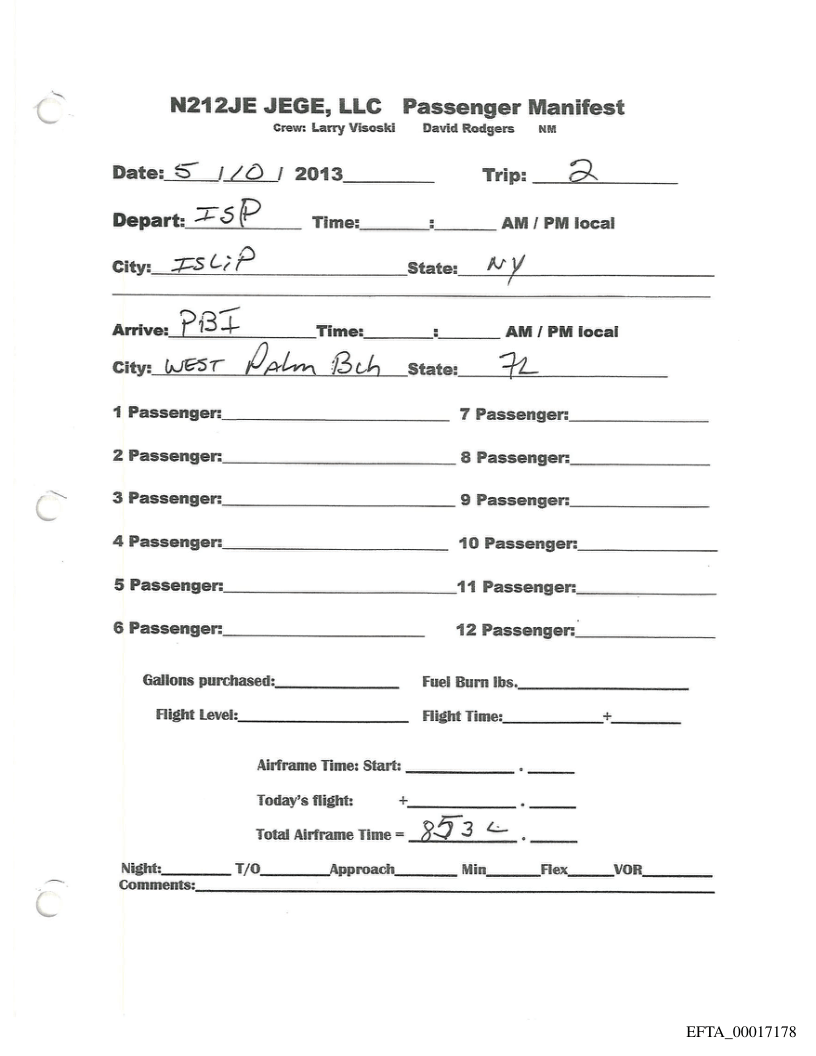 N212JE JEGE, LLC Passenger Manifest
Crew: Larry Visoski David Rodgers NM
Date: 5 / 10 / 2013 Trip: 2
Depart: ISP Time: : AM / PM local
City: ISLiP State: NY
Arrive: PBI Time: : AM / PM local
City: WEST Palm Bch State: FL
1 Passenger: 7 Passenger:
2 Passenger: 8 Passenger:
3 Passenger: 9 Passenger:
4 Passenger: 10 Passenger:
5 Passenger: 11 Passenger:
6 Passenger: 12 Passenger:
Gallons purchased: Fuel Burn lbs.
Flight Level: Flight Time: +
Airframe Time: Start: .
Today's flight: + .
Total Airframe Time = .
Night: T/O Approach Min Flex VOR
Comments:
EFTA_00017178